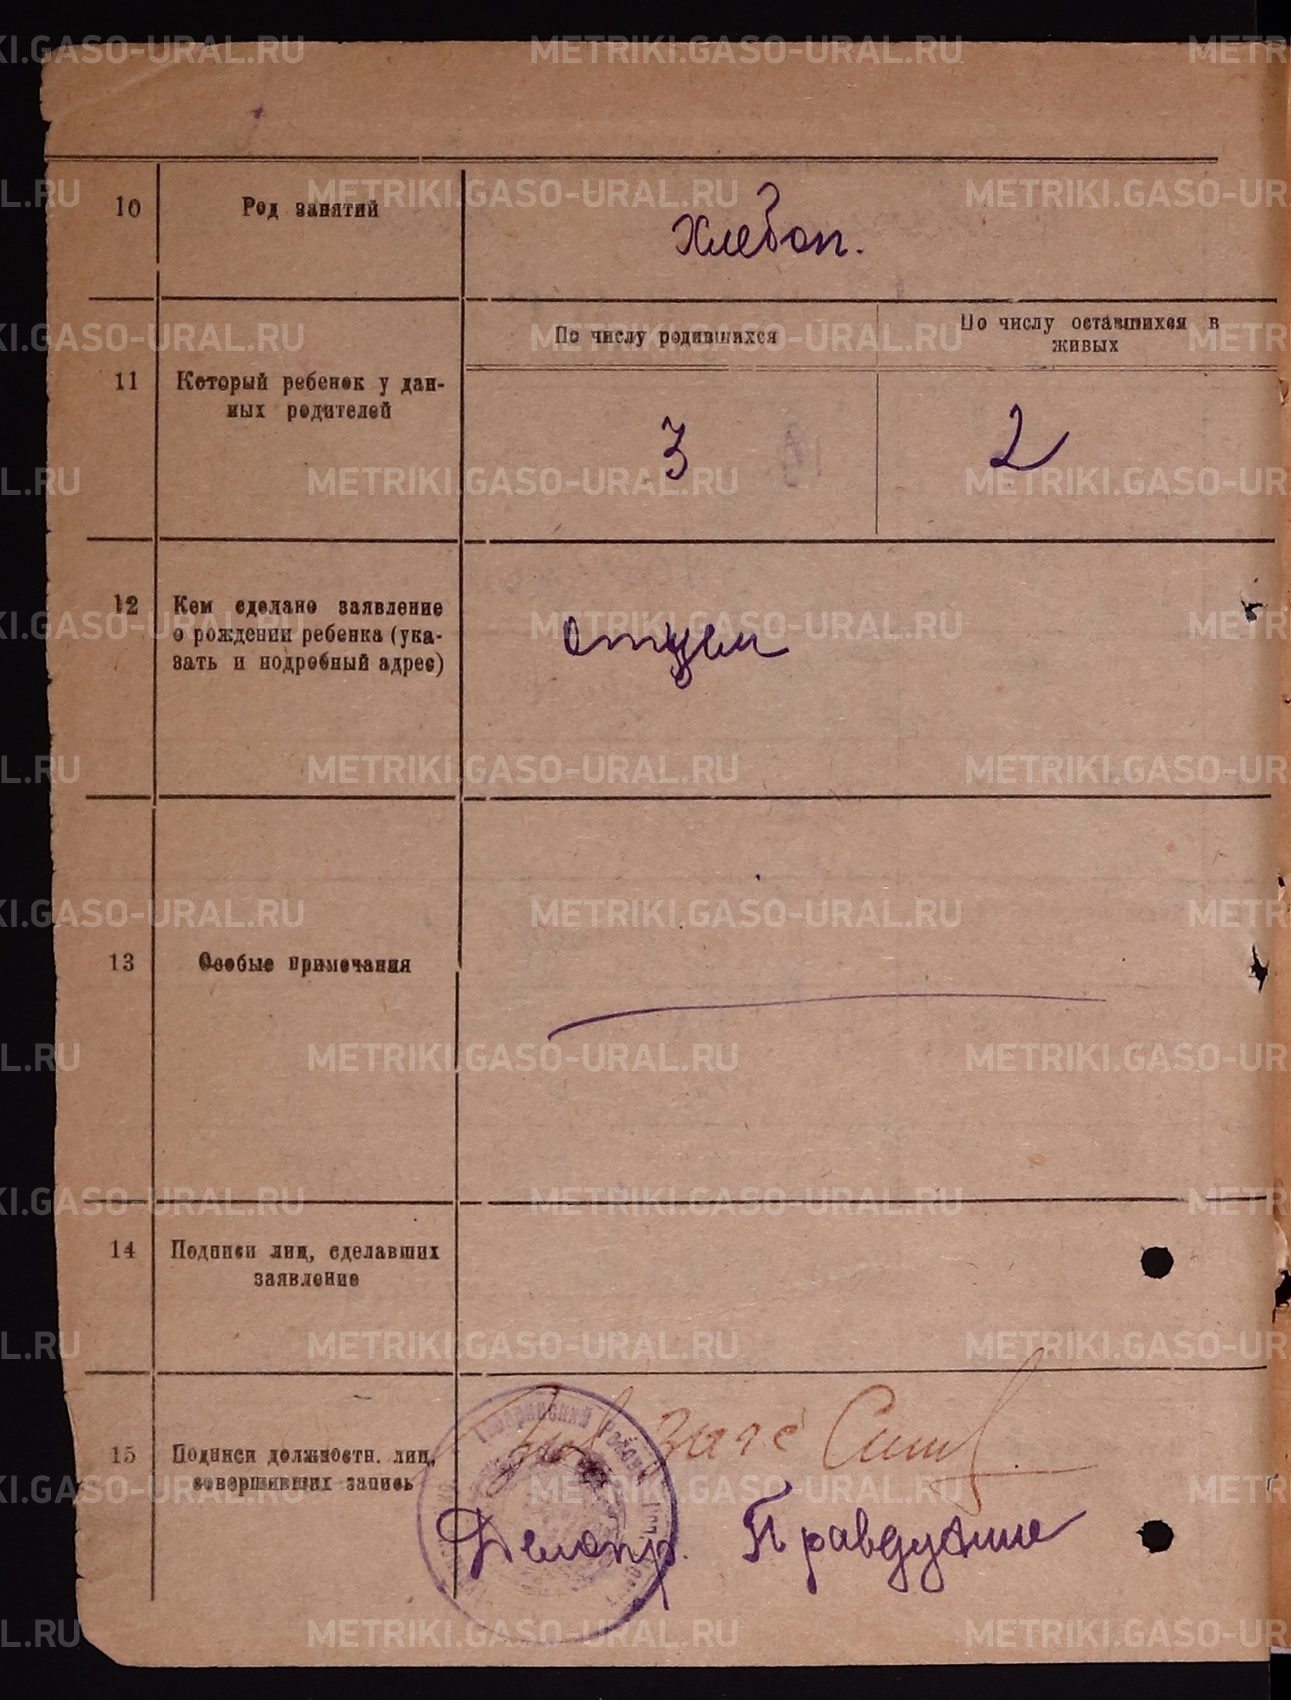 10 Род занятий Хлебоп.
По числу родившихся По числу оставшихся в
живых
11 Который ребенок у дан-
ных родителей 3 2
12 Кем сделано заявление
о рождении ребенка (ука-
зать и подробный адрес) отцем
13 Особые примечания
14 Подписи лиц, сделавших
заявление
15 Подписи должностн. лиц,
совершивших запись
Делопр.
METRIKI.GASO-URAL.RU